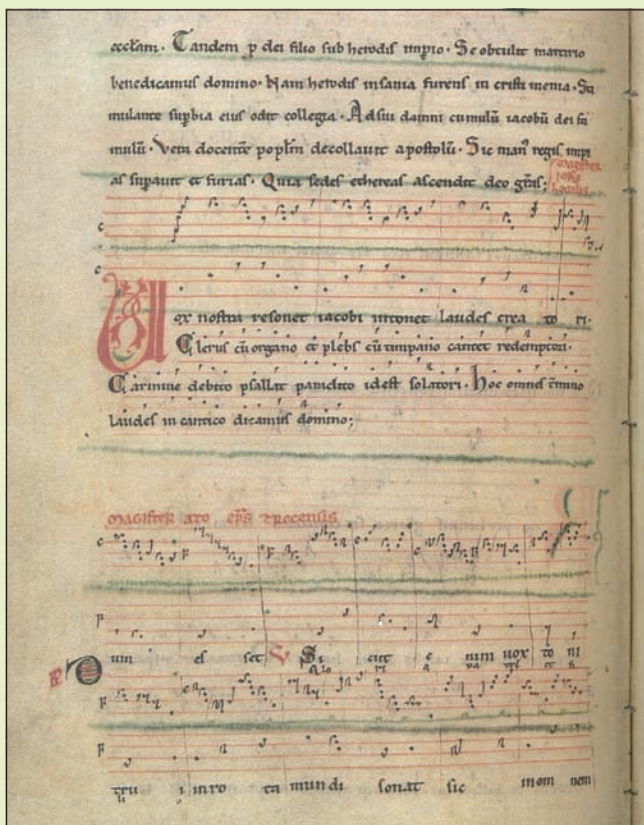 eccłam. Tandem p dei filio sub herodis impio. Se obtulit martirio
benedicamus domino. Nam herodis insania furens in cristi menia. Sti
mulante supbia eius odit collegia. Ad sui damni cumulū iacobū dei fa
mulū. Vera docentē popłm decollauit apostolū. Sic man9 regis impi
as supauit et furias. Quia sedes ethereas ascendit deo gr̄as;
magister
Vox nostra resonet iacobi intonet laudes crea to ri.
Clerus cū organo et plebs cū timpano cantet redemptori.
Carmine debito psallat paraclito idest solatori. Hoc omnes
laudes in cantico dicamus domino;
magister ato ep̄s trecensis
Dum es set V Si cut e nim uox to ni
tru i in ro ta mun di sonat sic in om nem